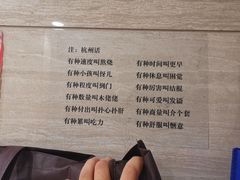 注：杭州话
有种速度叫熬烧
有种小孩叫伢儿
有种程度叫到门
有种数量叫木佬佬
有种付出叫扑心扑肝
有种累叫吃力
有种时间叫更早
有种休息叫困觉
有种厉害叫结棍
有种可爱叫发靥
有种商量叫介个套
有种舒服叫惬意